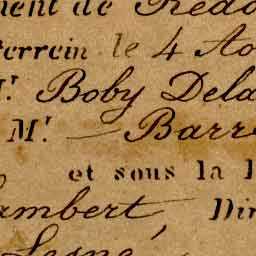 ment de Redo
errein le 4 Ao
Mr. Boby Dela
Mr. — Barre
et sous la
ambert, Dir
Lesné,